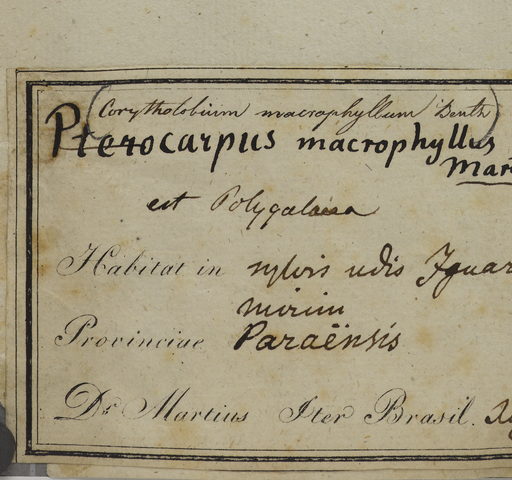 (Corytholobium macrophyllum Benth)
Pterocarpus macrophyllus
Mart
est Polygalaea
Habitat in sylvis udis Iguar
mirim
Provinciae Paraënsis
Dr. Martius Iter Brasil.